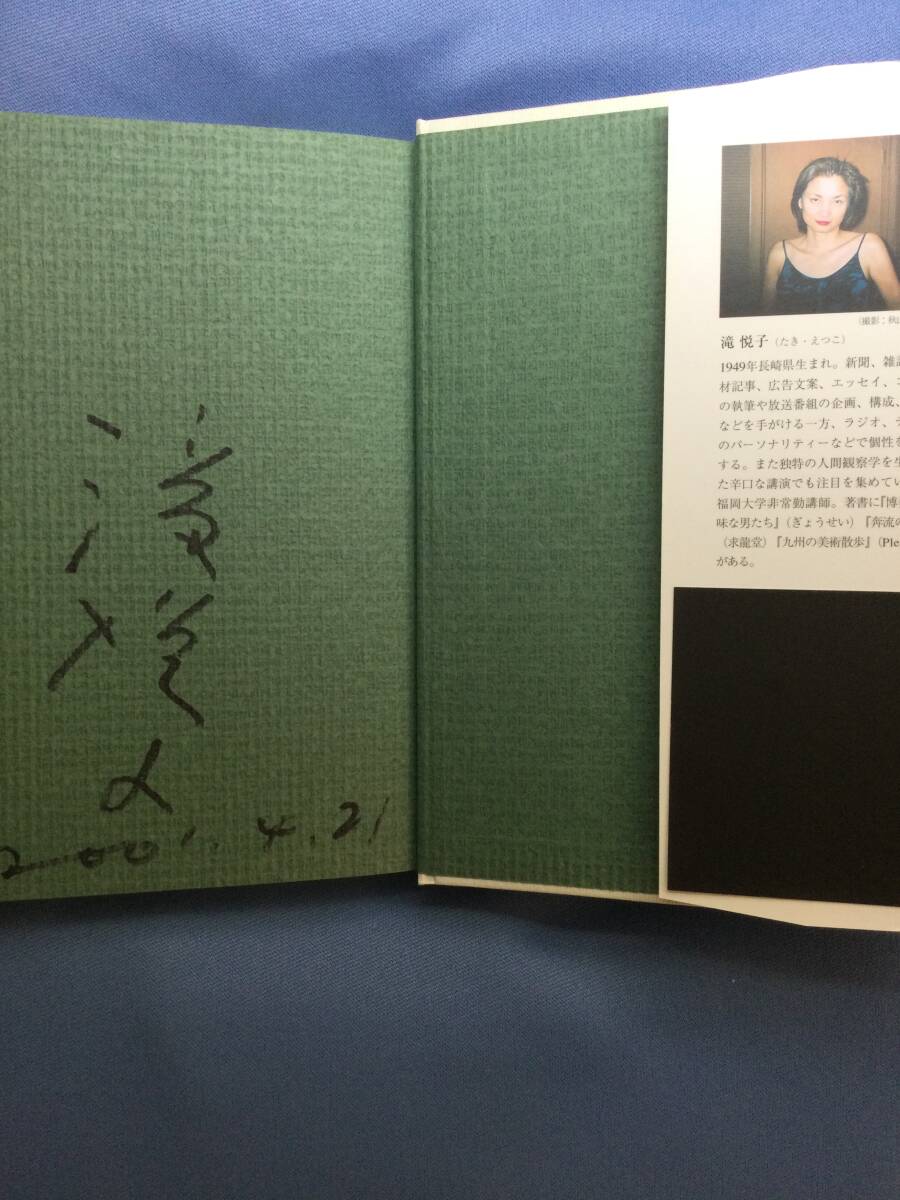 滝悦子
2001.4.21
(撮影:秋山
滝 悦子(たき・えつこ)
1949年長崎県生まれ。新聞、雑誌
材記事、広告文案、エッセイ、コ
の執筆や放送番組の企画、構成、
などを手がける一方、ラジオ、テ
のパーソナリティーなどで個性を
する。また独特の人間観察学を生
た辛口な講演でも注目を集めてい
福岡大学非常勤講師。著書に『博
味な男たち』(ぎょうせい)『奔流の
(求龍堂)『九州の美術散歩』(Ple
がある。